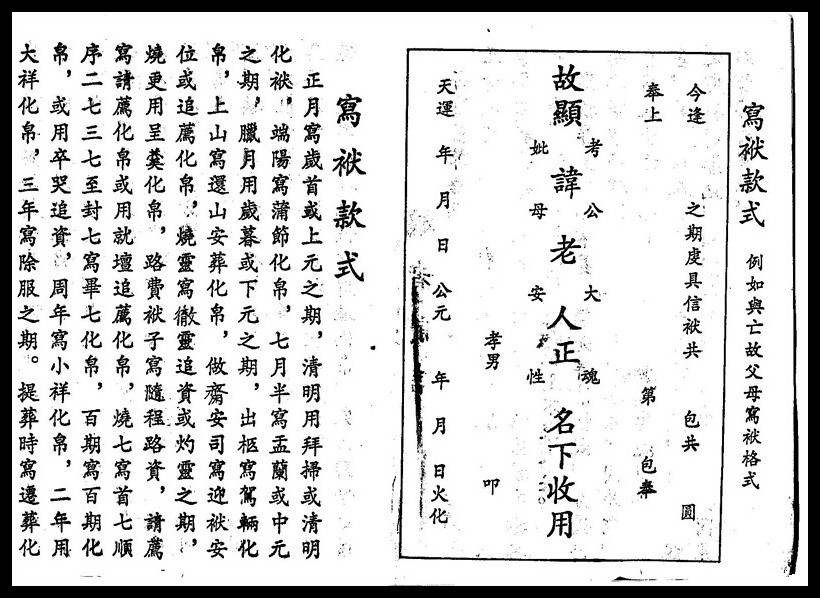 寫袱款式 例如與亡故父母寫袱格式
今逢 之期虔具信袱共 包共 圓
奉上 第 包奉
考公大魂
故顯諱老人正名下收用
妣母安性
孝男 叩
天運 年 月 日 公元 年 月 日火化
寫袱款式
正月寫歲首或上元之期，清明用拜掃或清明
化袱，端陽寫蒲節化帛，七月半寫盂蘭或中元
之期，臘月用歲暮或下元之期，出柩寫駕輛化
帛，上山寫還山安葬化帛，做齋安司寫迎袱安
位或追薦化帛，燒靈寫徹靈追資或灼靈之期，
燒更用呈羹化帛，路費袱子寫隨程路資，請薦
寫請薦化帛或用就壇追薦化帛，燒七寫首七順
序二七三七至封七寫畢七化帛，百期寫百期化
帛，或用卒哭追資，周年寫小祥化帛，二年用
大祥化帛，三年寫除服之期。提葬時寫遷葬化